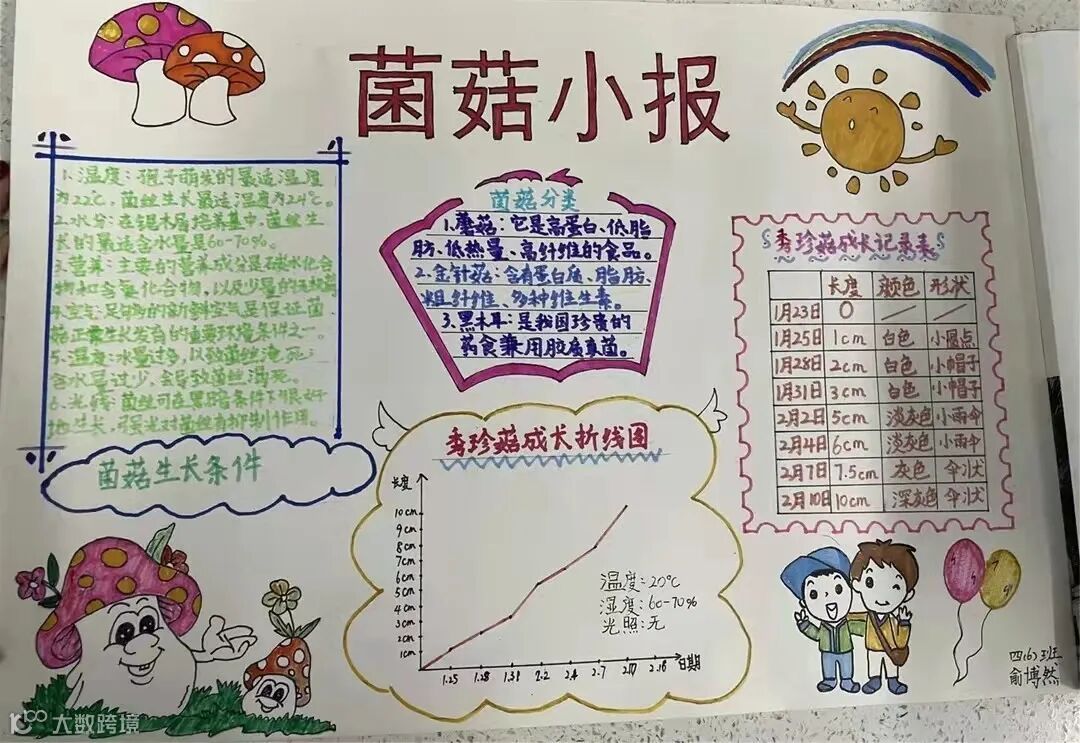 菌菇小报
1.温度：孢子萌发的最适温度
为22℃，菌丝生长最适温度为24℃。
2.水分：在锯木屑培养基中，菌丝生
长的最适含水量是60-70%。
3.营养：主要的营养成分是碳水化合
物和含氮化合物，以及少量的无机盐
4.空气：足够的新鲜空气是保证菌
菇正常生长发育的重要环境条件之一。
5.湿度：水量过多，以致菌丝淹死；
含水量过少，会导致菌丝渴死。
6.光线：菌丝可在黑暗条件下很好
地生长，强光对菌丝有抑制作用。
菌菇生长条件
菌菇分类
1.蘑菇：它是高蛋白、低脂
肪、低热量、高纤维的食品。
2.金针菇：含有蛋白质、脂肪、
粗纤维、多种维生素。
3.黑木耳：是我国珍贵的
药食兼用胶质真菌。
秀珍菇成长记录表
长度 颜色 形状
1月23日 0 / /
1月25日 1cm 白色 小圆点
1月28日 2cm 白色 小帽子
1月31日 3cm 白色 小帽子
2月2日 5cm 淡灰色 小雨伞
2月4日 6cm 淡灰色 小雨伞
2月7日 7.5cm 灰色 伞状
2月10日 10cm 深灰色 伞状
秀珍菇成长折线图
长度
10cm
9cm
8cm
7cm
6cm
5cm
4cm
3cm
2cm
1cm
1.25 1.28 1.31 2.2 2.4 2.7 日期
温度：20℃
湿度：60-70%
光照：无
四(6)班
俞博然
大数跨境